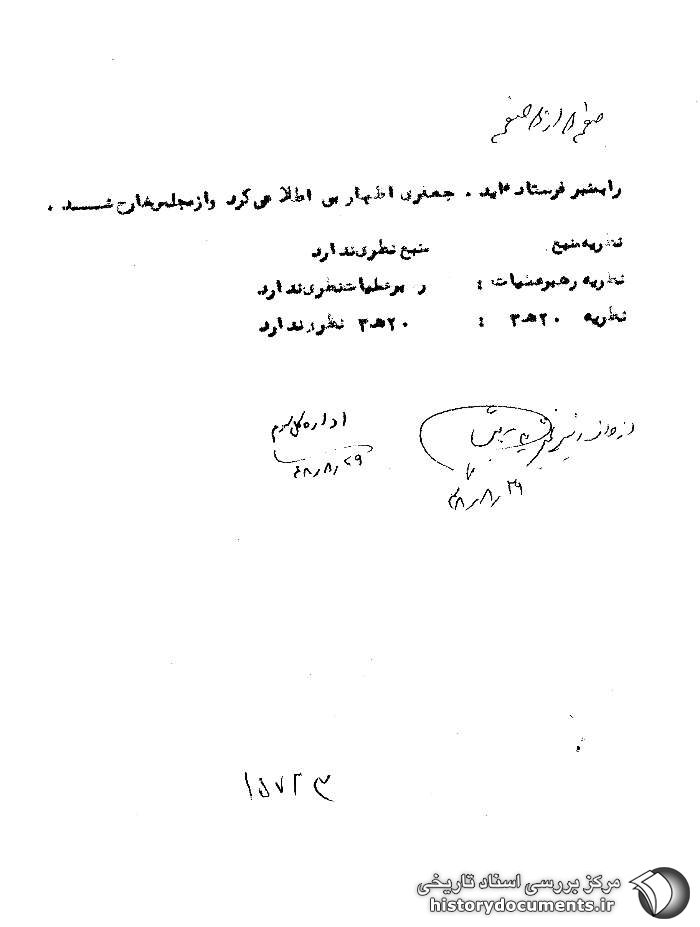 را بمنبر فرستاده اید . جعفری اظهار بی اطلاعی کرد و از مجلس خارج شد .
نظریه منبع منبع نظری ندارد
نظریه رهبر عملیات : رهبر عملیات نظری ندارد
نظریه ۲۰ هـ ۳ : ۲۰ هـ ۳ نظری ندارد
اداره کل سوم
۴۸٫۸٫۲۹
۴۸٫۸٫۲۹
۱۵۷۲۳
مرکز بررسی اسناد تاریخی
historydocuments.ir